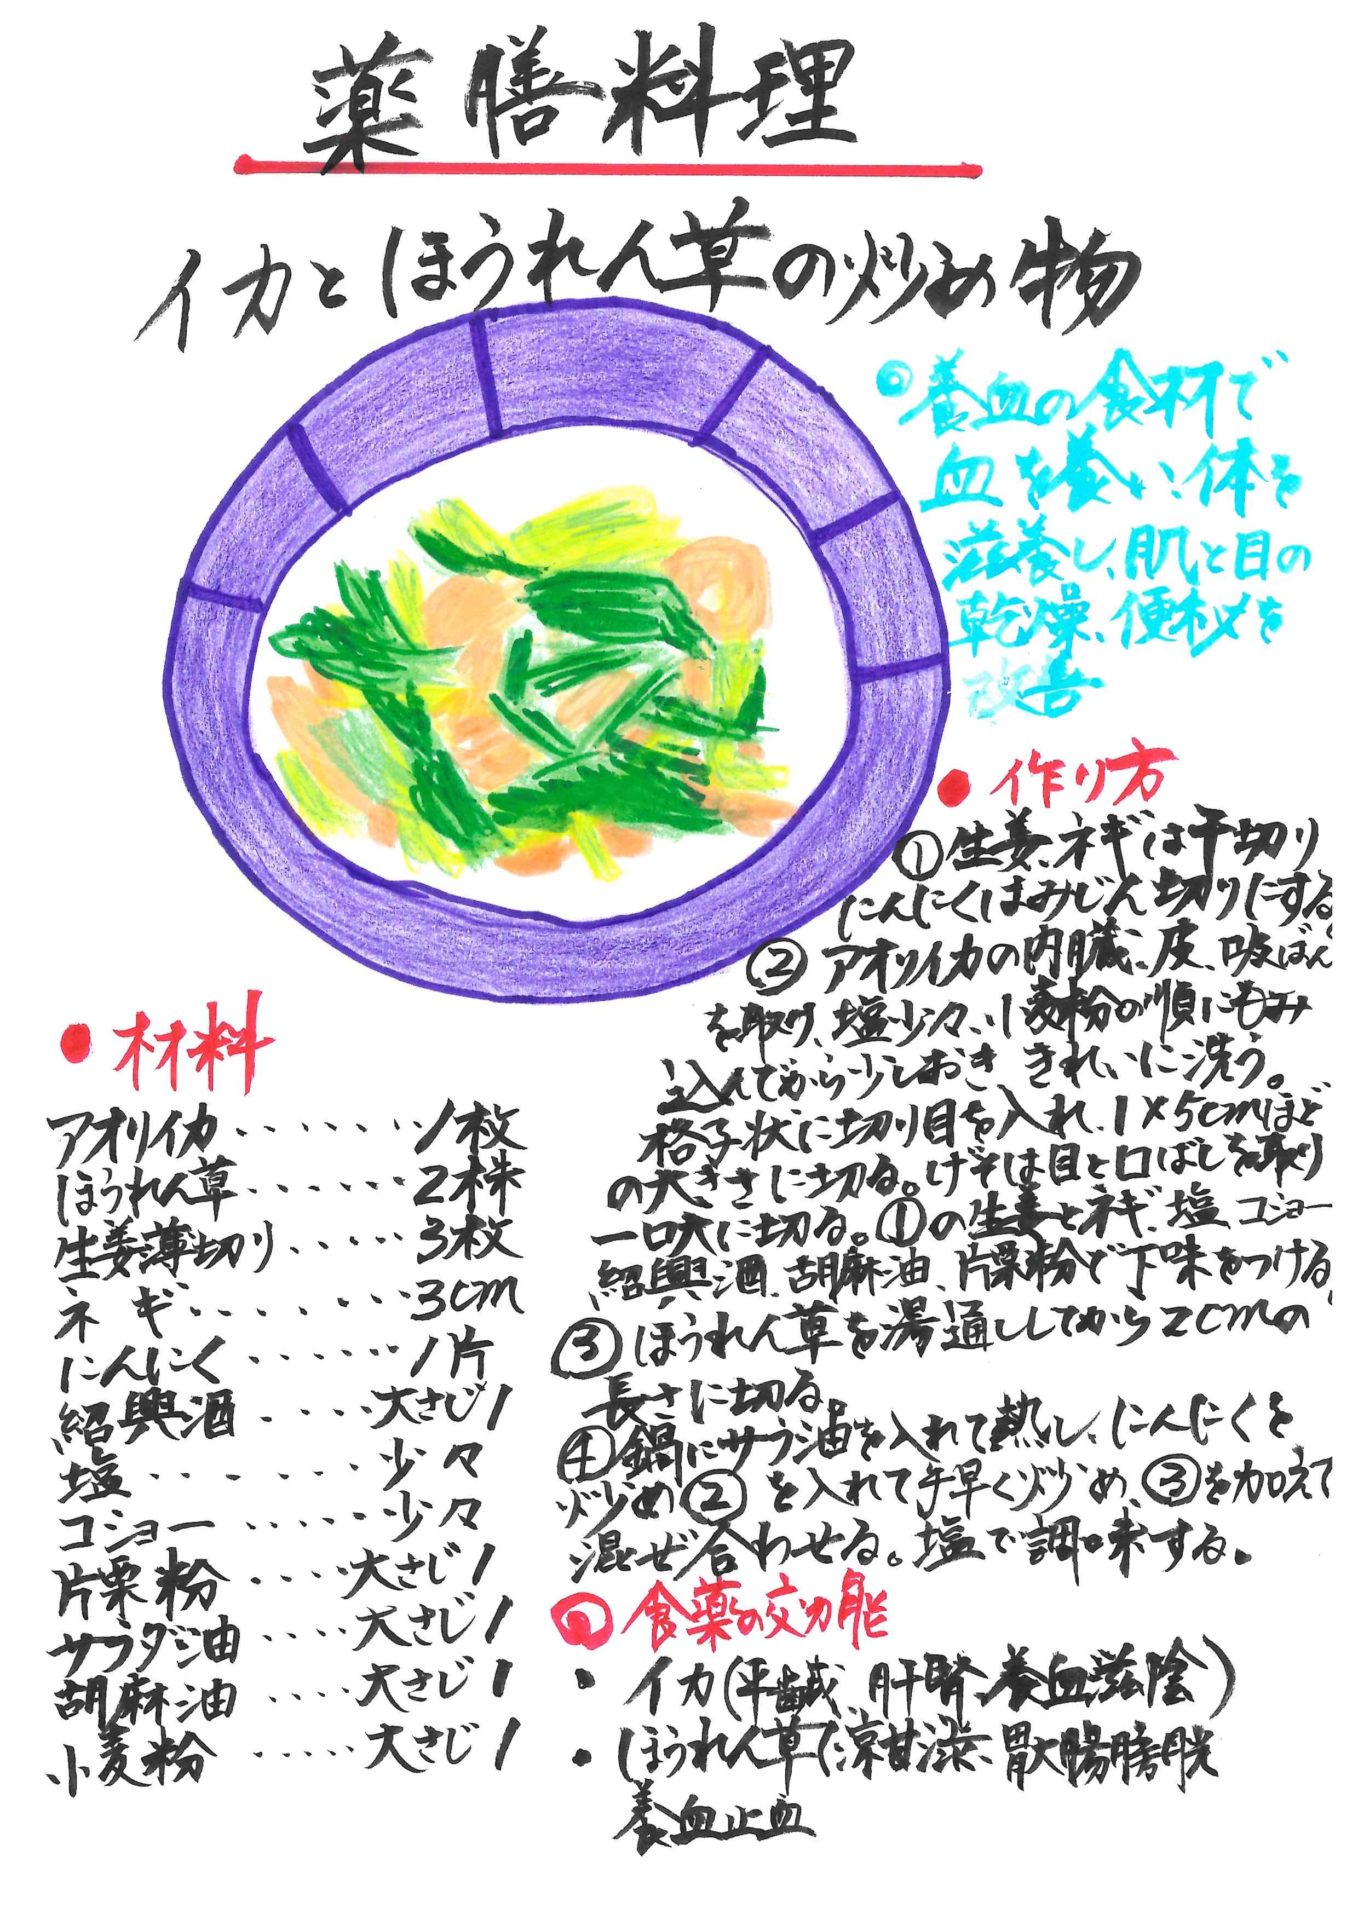 薬膳料理
イカとほうれん草の炒め物
◎養血の食材で
血を養い、体を
滋養し、肌と目の
乾燥、便秘を
改善
●作り方
①生姜、ネギは千切り
にんにくはみじん切りにする
②アオリイカの内臓、皮、吸ばん
を取り、塩少々、小麦粉の順にもみ
込んでから少しおき きれいに洗う。
格子状に切り目を入れ、1×5cmほど
の大きさに切る。げそは目と口ばしを取り
一口大に切る。①の生姜とネギ、塩、コショー
紹興酒、胡麻油、片栗粉で下味をつける
③ほうれん草を湯通ししてから2cmの
長さに切る。
④鍋にサラダ油を入れて熱し、にんにくを
炒め②を入れて手早く炒め、③を加えて
混ぜ合わせる。塩で調味する。
●材料
アオリイカ・・・・・・・1枚
ほうれん草・・・・・・2株
生姜薄切り・・・・・3枚
ネギ・・・・・・・・3cm
にんにく・・・・・・1片
紹興酒・・・・大さじ1
塩・・・・・・・少々
コショー・・・・・・少々
片栗粉・・・・大さじ1
サラダ油・・・・大さじ1
胡麻油・・・・大さじ1
小麦粉・・・・・大さじ1
◎食薬の効能
・イカ(平鹹、肝腎、養血滋陰)
・ほうれん草(涼甘渋、胃大腸膀胱
養血止血